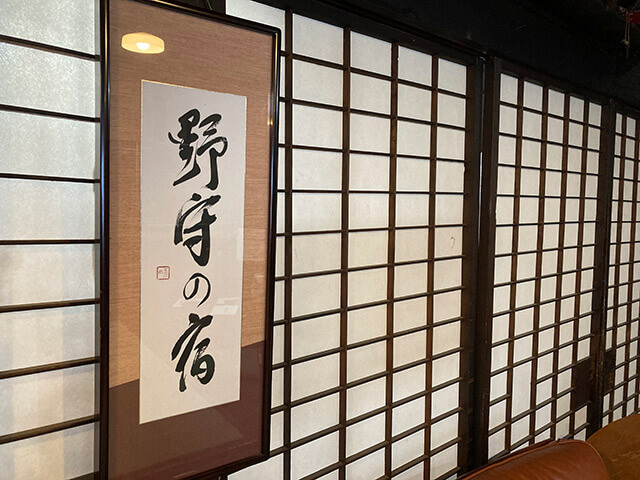 野守の宿